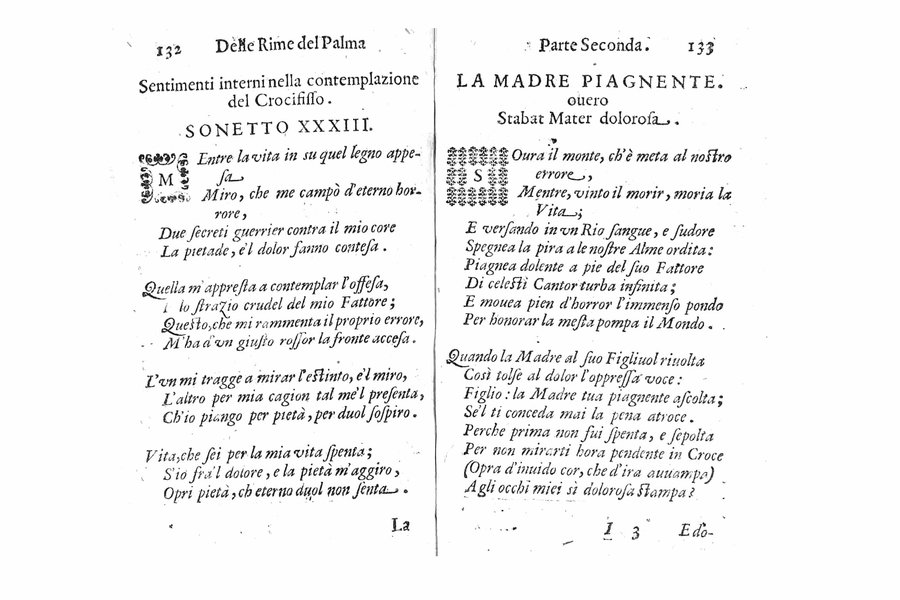 132 Delle Rime del Palma
Sentimenti interni nella contemplazione
del Crocifisso.
SONETTO XXXIII.
MEntre la vita in su quel legno appe-
sa
Miro, che me campò d'eterno hor-
rore,
Due secreti guerrier contra il mio core
La pietade, e'l dolor fanno contesa.
Quella m'appresta a contemplar l'offesa,
lo strazio crudel del mio Fattore;
Questo, che mi rammenta il proprio errore,
M'ha d'vn giusto rossor la fronte accesa.
L'vn mi tragge a mirar l'estinto, e'l miro,
L'altro per mia cagion tal me'l presenta,
Ch'io piango per pietà, per duol sospiro.
Vita, che sei per la mia vita spenta;
S'io fra'l dolore, e la pietà m'aggiro,
Opri pietà, ch eterno duol non senta.
La
Parte Seconda. 133
LA MADRE PIAGNENTE.
ouero
Stabat Mater dolorosa.
SOura il monte, ch'è meta al nostro
errore,
Mentre, vinto il morir, moria la
Vita;
E versando in vn Rio sangue, e sudore
Spegnea la pira a le nostre Alme ordita:
Piagnea dolente a pie del suo Fattore
Di celesti Cantor turba infinita;
E mouea pien d'horror l'immenso pondo
Per honorar la mesta pompa il Mondo.
Quando la Madre al suo Figliuol riuolta
Così tolse al dolor l'oppressa voce:
Figlio: la Madre tua piagnente ascolta;
Se'l ti conceda mai la pena atroce.
Perche prima non fui spenta, e sepolta
Per non mirarti hora pendente in Croce
(Opra d'inuido cor, che d'ira auuampa)
Agli occhi miei si dolorosa stampa?
I 3 E do-